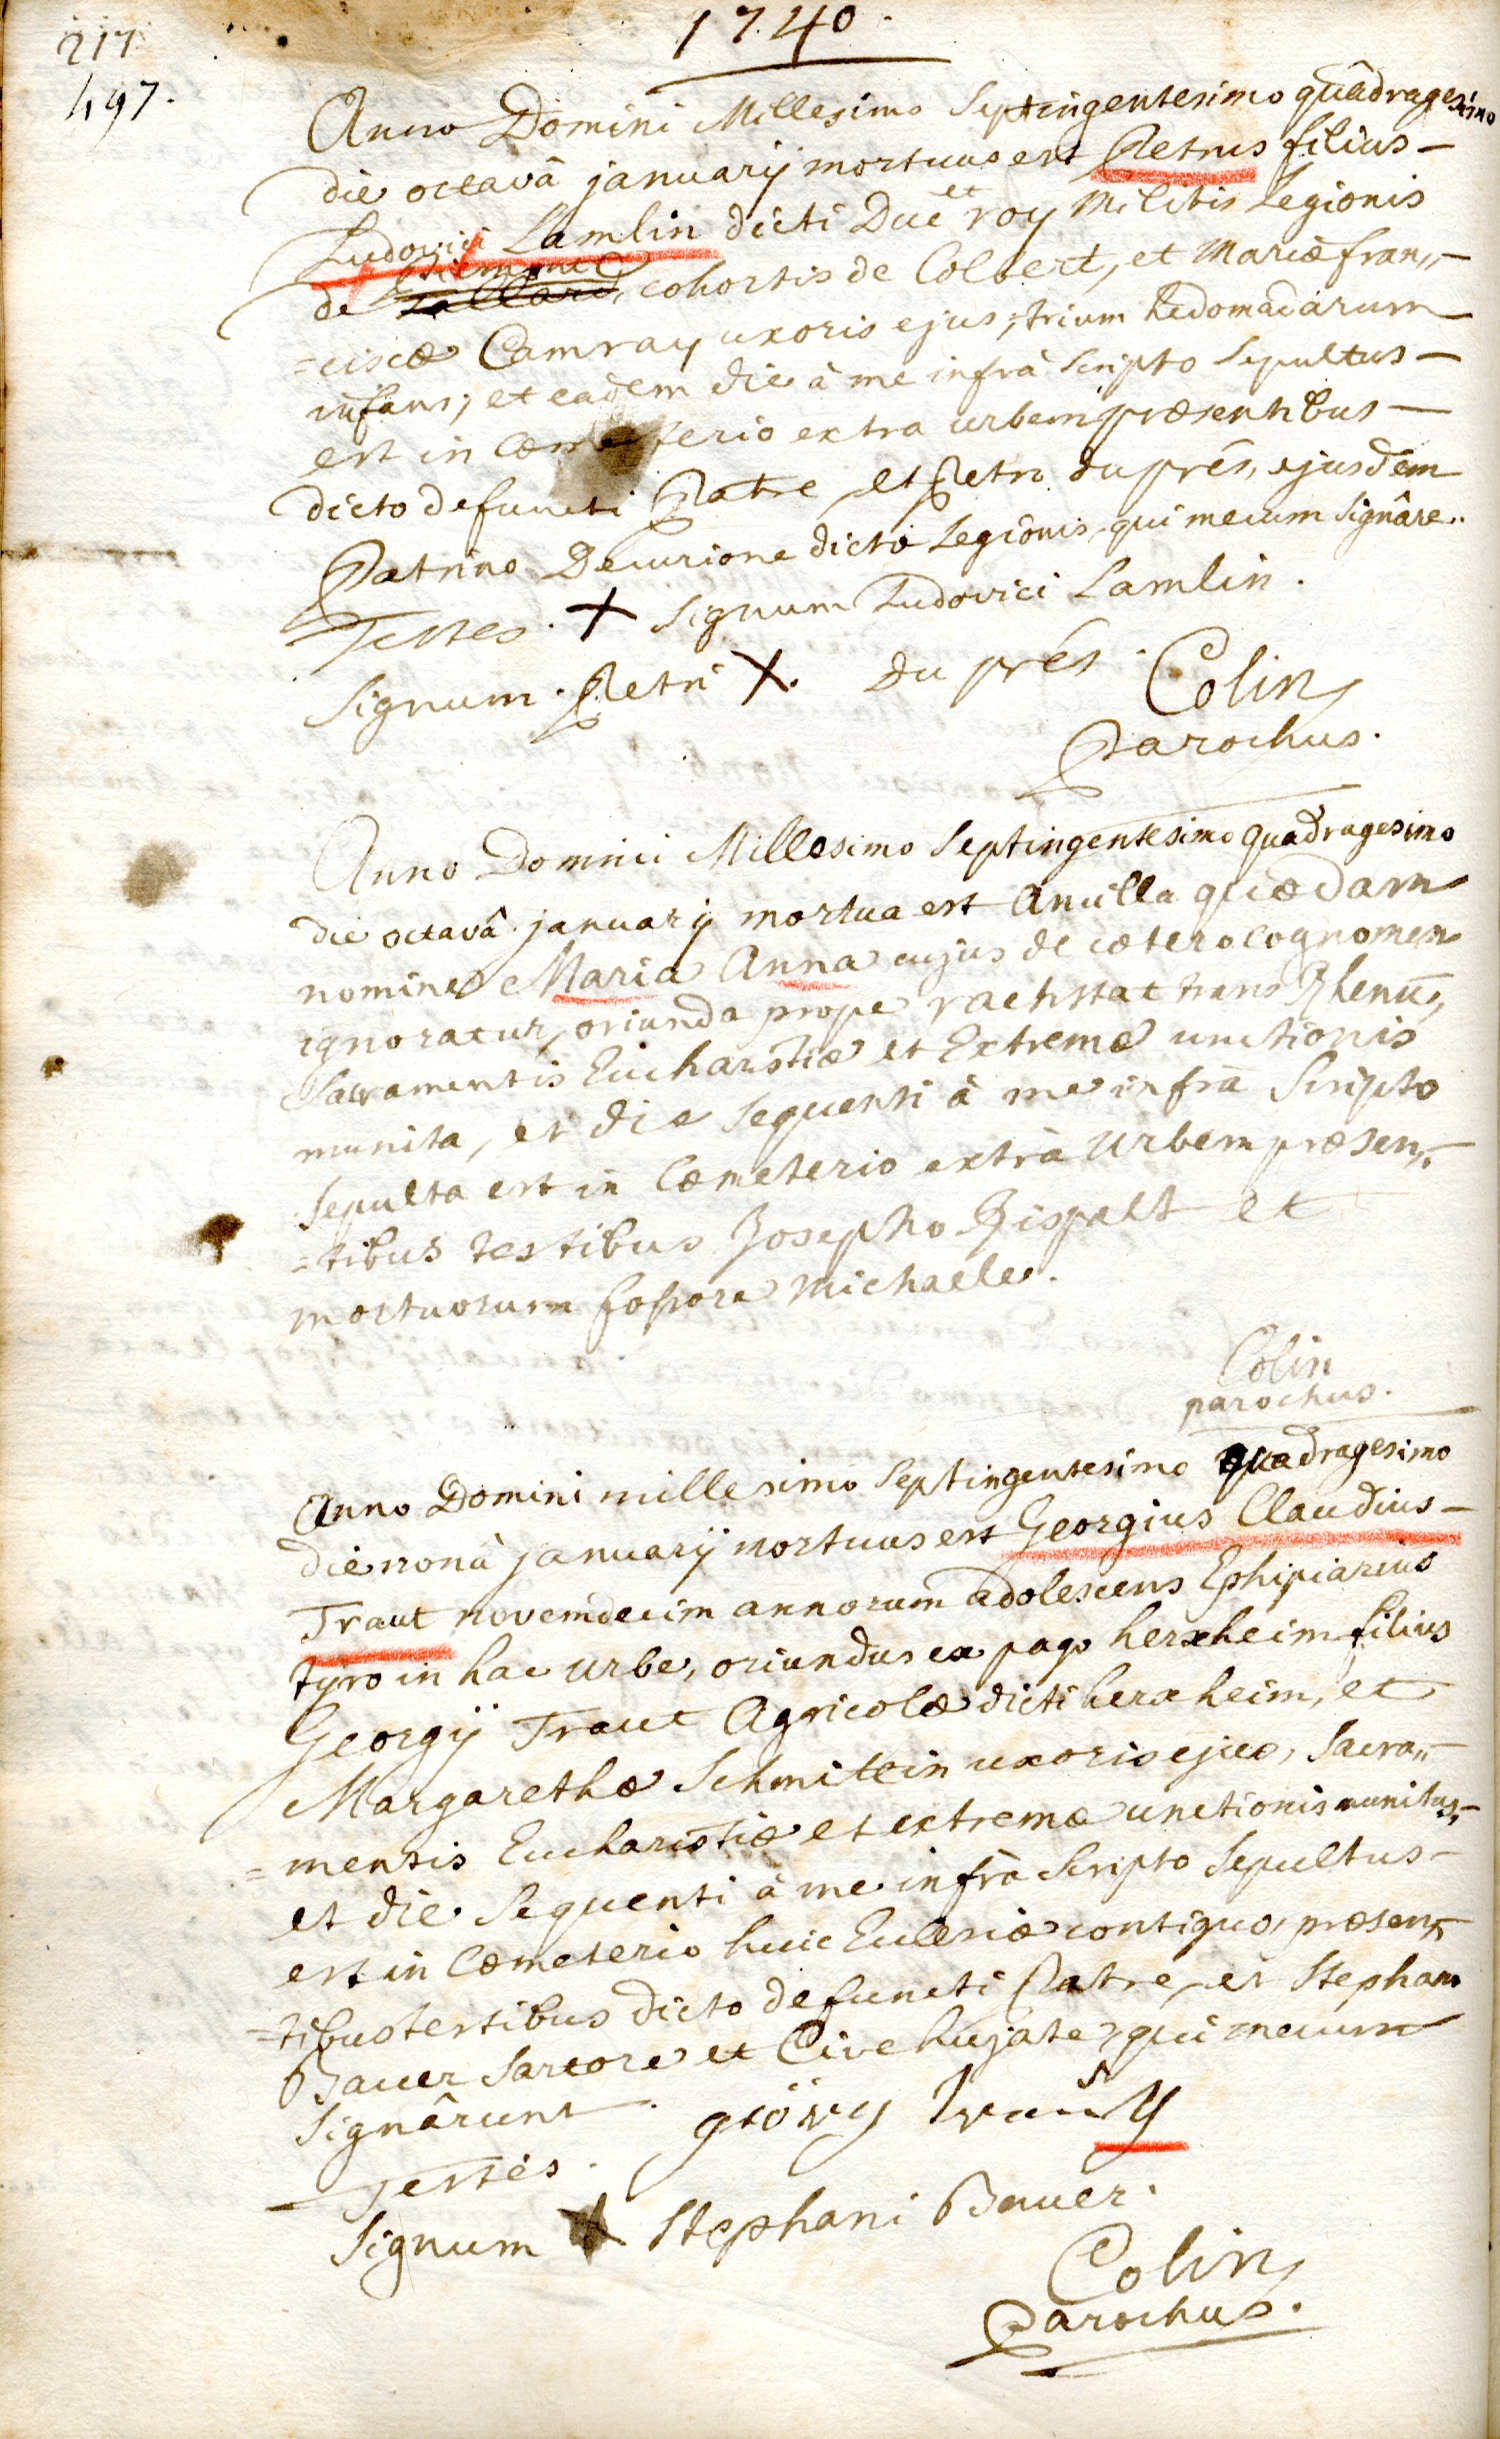 1740.
217
497.
Anno Domini Millesimo Septingentesimo quâdragesimo
die octavâ januarij mortuus est Petrus filius
Ludovici Lamlin dicti Duc et roy Militis Legionis
de cohortis de Colbert, et Mariæ fran„
=ciscæ Camray uxoris ejus, trium hedomadarum
infans; et eadem die à me infrà scripto sepultus
est in Cœmeterio extra urbem præsentibus
dicto defuncti Patre et Petro du prés, ejusdem
Patrino Decurione dictæ Legionis qui mecum signâre„
Testes. + signum Ludovici Lamlin.
Signum Petri X. du prés.
Colin
Parochus.
Anno Domini Millesimo Septingentesimo quadragesimo
die octavâ januarij mortua est Ancilla quædam
nomine Maria Anna cujus de cætero cognomen
ignoratur, oriunda prope rachstat trans Rhenū,
Sacramentis Eucharistiæ et Extremæ unctionis
munita, et die sequenti à me infrà Scripto
sepulta est in Cœmeterio extrà Urbem præsen„
=tibus testibus Josepho Rispalt et
mortuorum fossore Michaele.
Colin
parochus.
Anno Domini millesimo Septingentesimo quadragesimo
die nonâ januarij mortuus est Georgius Claudius
Traut novemdecim annorum adolescens Ephipiarius
tyro in hac urbe, oriundus ex pago herxheim filius
Georgij Traut Agricolæ dicti herxheim, et
Margarethæ Schmittin uxoris ejus, Sacra„
=mentis Eucharistiæ et extremæ unctionis munitus,
et die sequenti à me infrà scripto sepultus
est in Cœmeterio huic Ecclesiæ contiguo, præsen„
=tibus testibus dicto defuncti Patre, et Stephano
Bauer Sartore et Cive hujate, qui mecum
signârunt.
Testes.
Signum + Stephani Bauer.
Colin
Parochus.